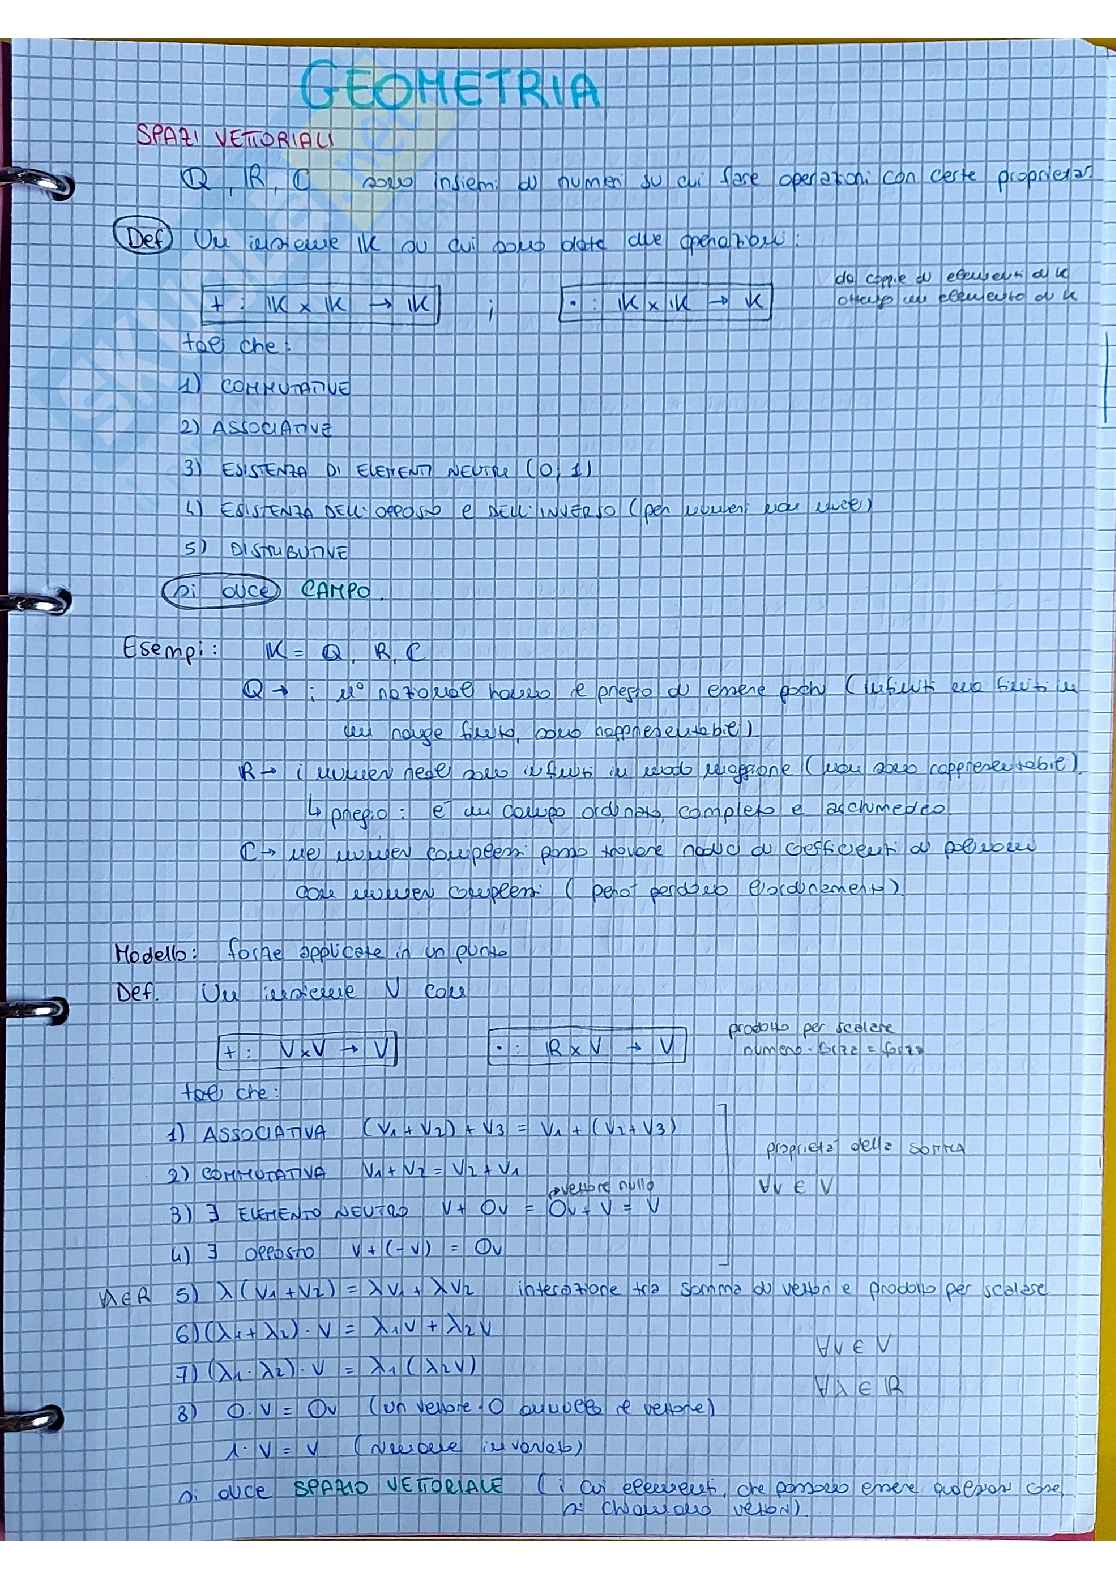 GEOMETRIA
SPAZI VETTORIALI
Q, R, C sono insiemi di numeri su cui fare operazioni con certe proprietà
Def Un insieme K su cui sono date due operazioni:
+ : K x K → K ; • : K x K → K
da coppie di elementi di K
ottengo un elemento di K
tali che:
1) COMMUTATIVE
2) ASSOCIATIVE
3) ESISTENZA DI ELEMENTI NEUTRI (0, 1)
4) ESISTENZA DELL'OPPOSTO E DELL'INVERSO (per numeri non nulli)
5) DISTRIBUTIVE
si dice CAMPO.
Esempi: K = Q, R, C
Q → i n° hanno il pregio di essere pochi (infiniti ma finiti in
un range finito, sono rappresentabili)
R → i numeri reali sono infiniti in modo maggiore (non sono rappresentabili)
↳ pregio: è un campo ordinato, completo e archimedeo
C → nei numeri complessi posso trovare radici di coefficienti di polinomi
con numeri complessi (però perdono l'ordinamento)
Modello: forze applicate in un punto
Def. Un insieme V con
+ : V x V → V • : R x V → V
prodotto per scalare
numero · forza = forza
tali che:
1) ASSOCIATIVA (V1 + V2) + V3 = V1 + (V2 + V3)
proprietà della somma
2) COMMUTATIVA V1 + V2 = V2 + V1
∀v ∈ V
→ vettore nullo
3) ∃ ELEMENTO NEUTRO V + 0v = 0v + V = V
4) ∃ OPPOSTO V + (-V) = 0v
∀λ∈R 5) λ(V1 + V2) = λV1 + λV2 interazione tra somma di vettori e prodotto per scalare
6) (λ1 + λ2) · V = λ1V + λ2V
∀v ∈ V
7) (λ1 · λ2) · V = λ1(λ2V)
∀λ ∈ R
8) 0 · V = 0v (un vettore · 0 annulla il vettore)
1 · V = V (rimane invariato)
si dice SPAZIO VETTORIALE (i cui elementi, che possono essere qualsiasi cosa,
si chiamano vettori)